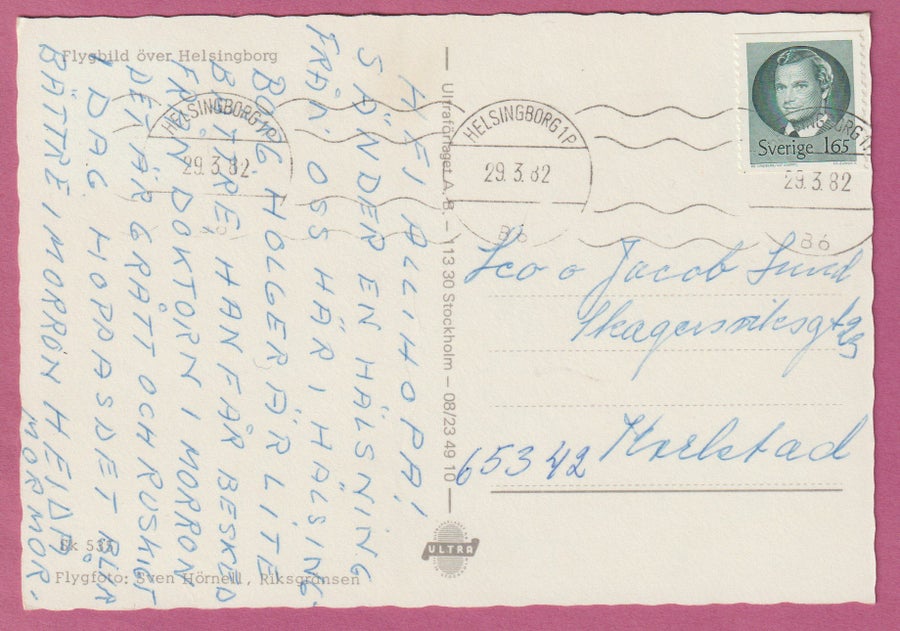 Flygbild över Helsingborg
HEJ ALLIHOPA!
SÄNDER EN HÄLSNING
FRÅN OSS HÄR I HÄLSING-
BORG HOLGER ÄR LITE
BÄTTRE HAN FÅR BESKED
FRÅN DOKTORN I MORRON
DET ÄR GRÅTT OCH RUSKIGT
I DAG HOPPAS DET BLIR
BÄTTRE I MORRON HEJDÅ
MORMOR.
Sk 535
Flygfoto: Sven Hörnell, Riksgränsen
Ultraförlaget A.B. — 113 30 Stockholm — 08/23 49 10
ULTRA
HELSINGBORG 1P
29.3.82
HELSINGBORG 1P
29.3.82
B6
29.3.82
B6
Sverige 165
o Jacob Lund
65342 Karlstad